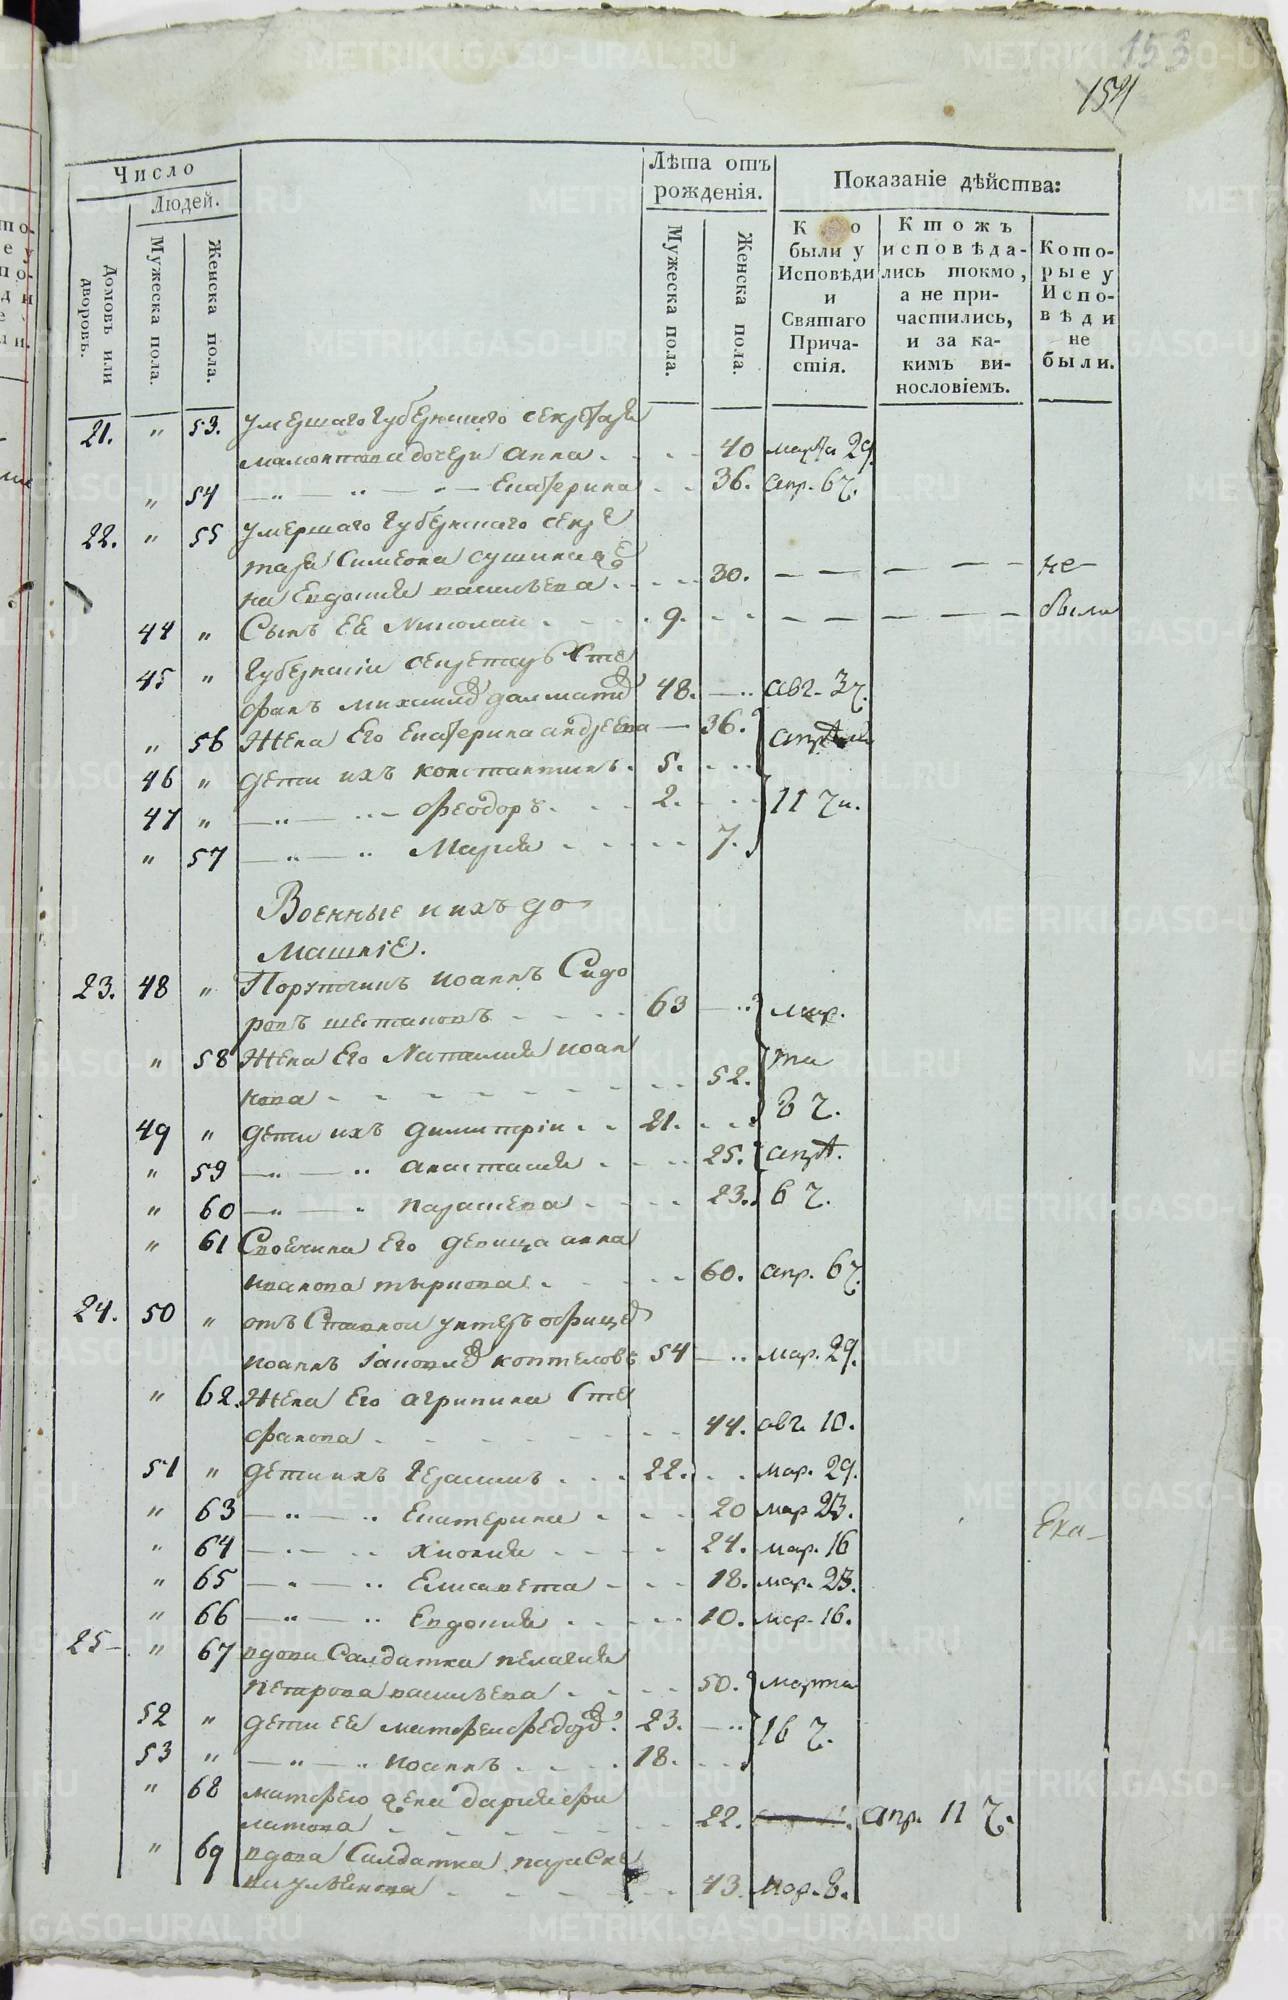 153
154
Число
Людей.
Домовъ или дворовъ.
Мужеска пола.
Женска пола.
Лѣта отъ рожденія.
Мужеска пола.
Женска пола.
Показаніе дѣйства:
К о были у Исповѣди и Святаго Причастія.
Ктожъ исповѣдались токмо, а не причастились, и за какимъ винословіемъ.
Которые у Исповѣди не были.
21. " 53. умершаго Губернскаго секретаря
Мамонтова дочери Анна 40 марта 29.
" 54 Екатерина 36. апр. 6 ч.
22. " 55 умершаго Губернскаго секре
таря Симеона
на Евдокия васильева 30. не
44 " Сынъ Ея Николай 9. были
45 " Губернскій секретарь Сте
фанъ Михаилов 48. авг. 3 ч.
" 56 Жена Его Екатерина андреева 36. апреля
46 " дети ихъ константинъ 5.
47 " феодоръ 2. 11 ч.
" 57 Мария 7.
Военные и ихъ до
машніе.
23. 48 " Порутчикъ иоаннъ Сидо
ровъ шестаковъ 63 мар
" 58 Жена Его Наталия иоан 52. та
нова 8 ч.
49 " дети ихъ димитрій 21.
" 59 анастасия 25. апр.
" 60 параскева 23. 6 ч.
" 61 Своячина Его девица анна
иванова 60. апр. 6 ч.
24. 50 " отъ Ставной унтеръ офицер
иоаннъ коптеловъ 54 мар. 29.
" 62. Жена Его агрипина Сте
фанова 44. авг. 10.
51 " дети ихъ Герасимъ 22. мар. 29.
" 63 Екатерина 20 мар. 23.
" 64 хиония 24. мар. 16
Ека
" 65 Елисавета 18. мар. 23.
" 66 Евдокия 10. мар. 16.
25 " 67 вдова Салдатка пелагия
петрова васильева 50. марта
52 " дети Ея матфей федор. 23. 16 ч.
53 " иоаннъ 18.
" 68 матфею жена дария
22. апр. 11 ч.
" 69 вдова Салдатка параске
ва 43. мар. 8.
METRIKI.GASO-URAL.RU